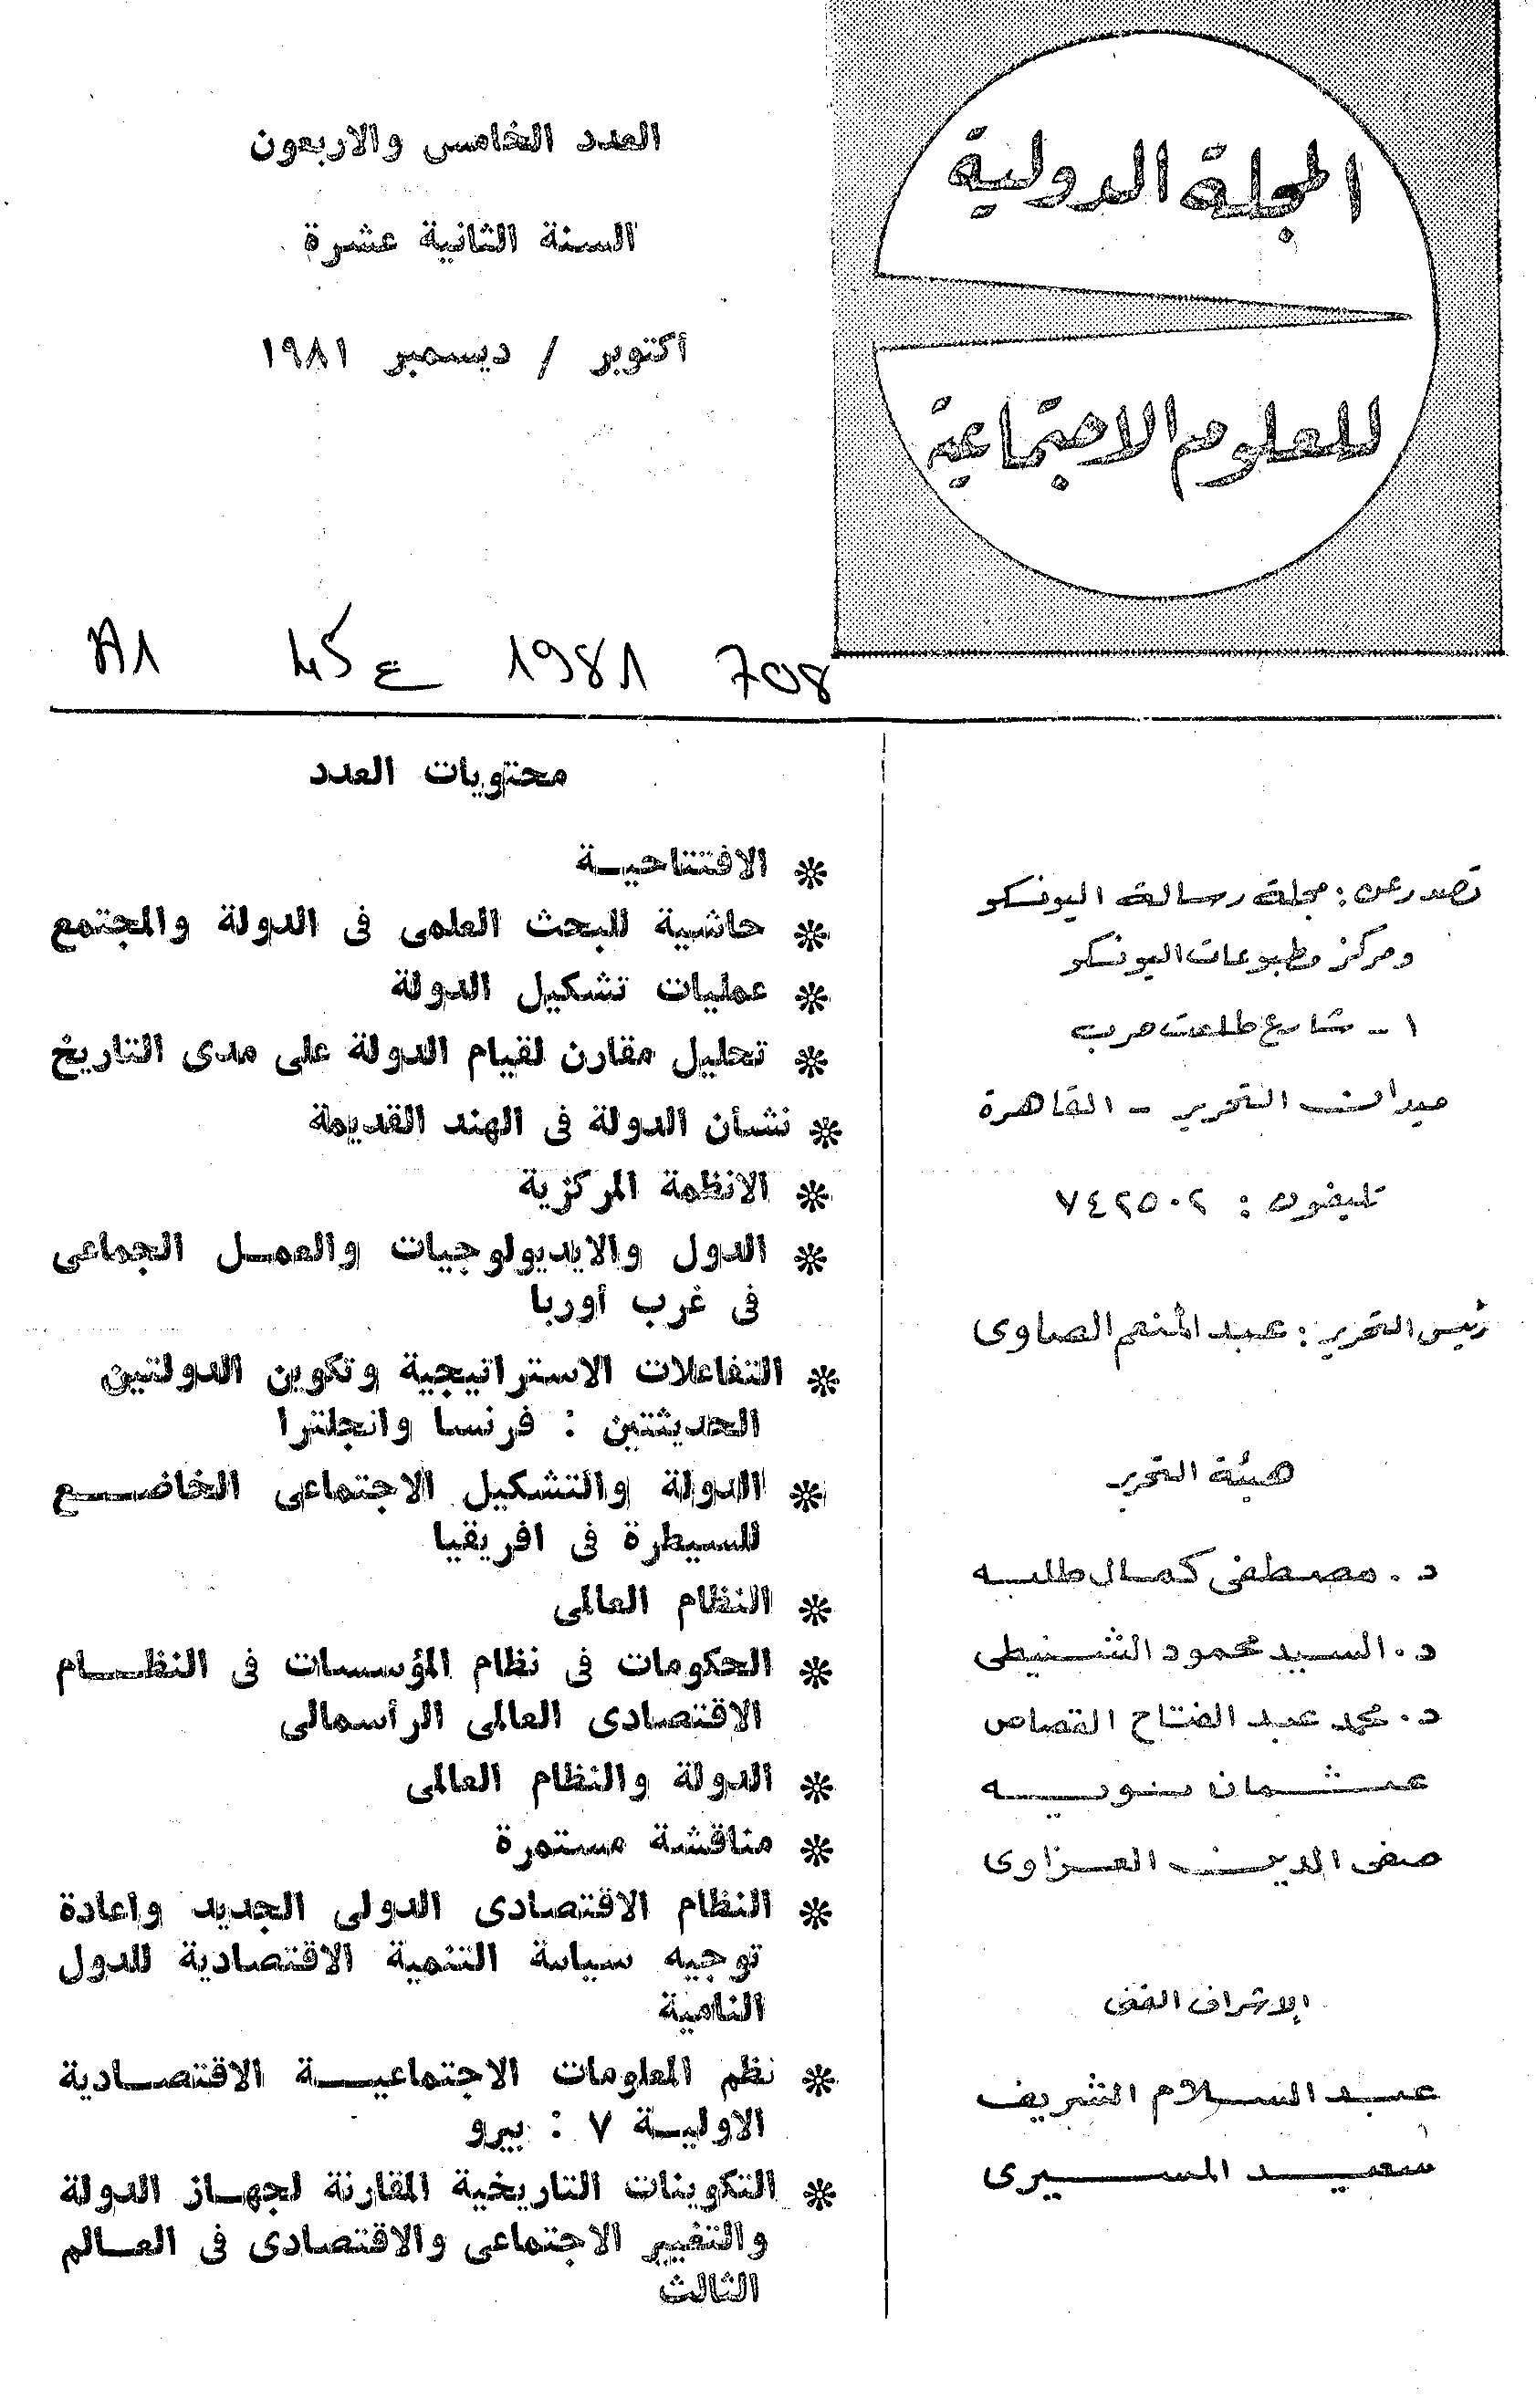 المجلة الدولية
للعلوم الاجتماعية
العدد الخامس والاربعون
السنة الثانية عشرة
أكتوبر / ديسمبر ١٩٨١
A1 45 ع 1981 708
تصدر عن : مجلة رسالة اليونسكو
ومركز مطبوعات اليونسكو
١ - شارع طلعت حرب
ميدان التحرير - القاهرة
تليفون : ٧٤٢٥٠٢
رئيس التحرير : عبد المنعم الصاوى
هيئة التحرير
د . مصطفى كمال طلبه
د . السيد محمود الشنيطى
د . محمد عبد الفتاح القصاص
عثمان نويه
صفى الدين العزاوى
الإشراف الفنى
عبد السلام الشريف
سعيد المسيرى
محتويات العدد
❊ الافتتاحية
❊ حاشية للبحث العلمى فى الدولة والمجتمع
❊ عمليات تشكيل الدولة
❊ تحليل مقارن لقيام الدولة على مدى التاريخ
❊ نشأن الدولة فى الهند القديمة
❊ الانظمة المركزية
❊ الدول والايديولوجيات والعمل الجماعى
فى غرب أوربا
❊ التفاعلات الاستراتيجية وتكوين الدولتين
الحديثتين : فرنسا وانجلترا
❊ الدولة والتشكيل الاجتماعى الخاضع
للسيطرة فى افريقيا
❊ النظام العالمى
❊ الحكومات فى نظام المؤسسات فى النظام
الاقتصادى العالمى الرأسمالى
❊ الدولة والنظام العالمى
❊ مناقشة مستمرة
❊ النظام الاقتصادى الدولى الجديد واعادة
توجيه سياسة التنمية الاقتصادية للدول
النامية
❊ نظم المعلومات الاجتماعية الاقتصادية
الاولية ٧ : بيرو
❊ التكوينات التاريخية المقارنة لجهاز الدولة
والتغيير الاجتماعى والاقتصادى فى العالم
الثالث